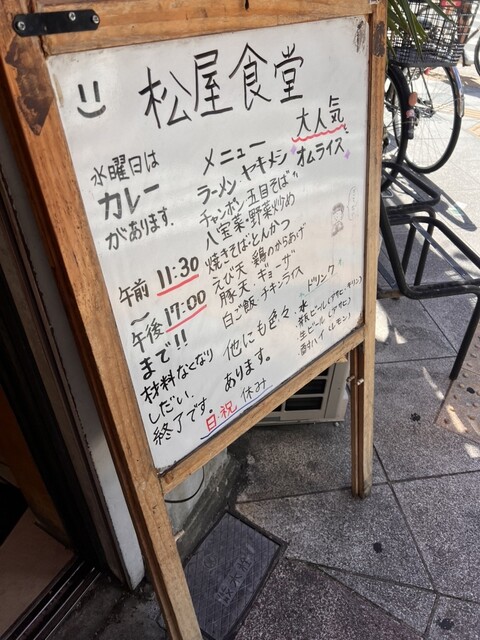 松屋食堂
水曜日は
カレー
があります。
午前 11:30
〜
午後 17:00
まで!!
材料なくなり
しだい、
終了です。
日・祝 休み
メニュー
大人気
ラーメン・ヤキメシ・オムライス
チャンポン・五目そば
八宝菜・野菜炒め
焼きそば・とんかつ
えび天・鶏のからあげ
豚天・ギョーザ
白ご飯・チキンライス
他にも色々
あります。
ドリンク
・水
・瓶ビール(アサヒ・キリン)
・生ビール(アサヒ)
・酎ハイ(レモン)